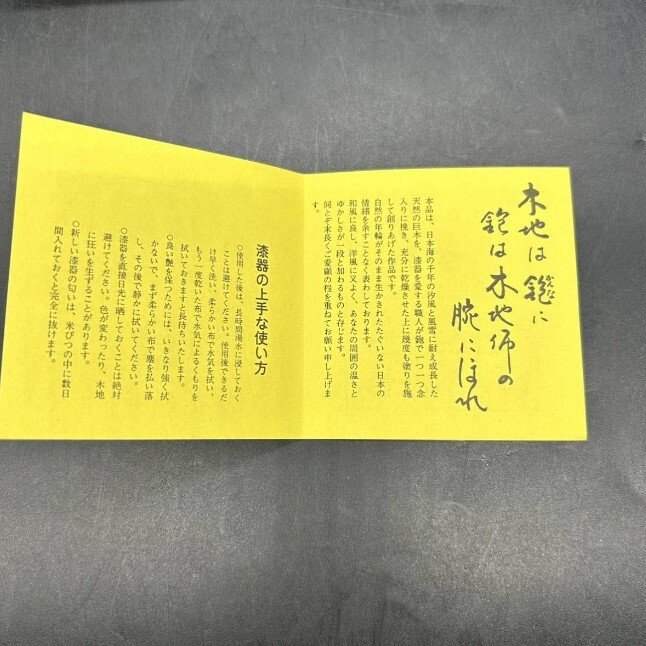 木地は鉋に
鉋は木地師の
腕にほれ
本品は、日本海の千年の汐風と風雪に耐え成長した
天然の巨木を、漆器を愛する職人が鉋で一つ一つ念
入りに挽き、充分に乾燥させた上に幾度も塗りを施
して創りあげた作品です。
自然の年輪がそのまま生かされたたぐいない日本の
情緒を余すことなく表わしております。
和風に良し、洋風に又よく、あなたの周囲の温さと
ゆかしさが一段と加わるものと存じます。
何とぞ末長くご愛顧の程を重ねてお願い申し上げま
す。
漆器の上手な使い方
○使用した後は、長時間湯水に浸しておく
ことは避けてください。使用後できるだ
け早く洗い、柔らかい布で水気を拭い、
もう一度乾いた布で水気によるくもりを
拭いておきますと長持ちいたします。
○良い艶を保つためには、いきなり強く拭
かないで、まず柔らかい布で塵を払い落
し、その後で静かに拭いてください。
○漆器を直接日光に晒しておくことは絶対
避けてください。色が変わったり、木地
に狂いを生ずることがあります。
○新しい漆器の匂いは、米びつの中に数日
間入れておくと完全に抜けます。